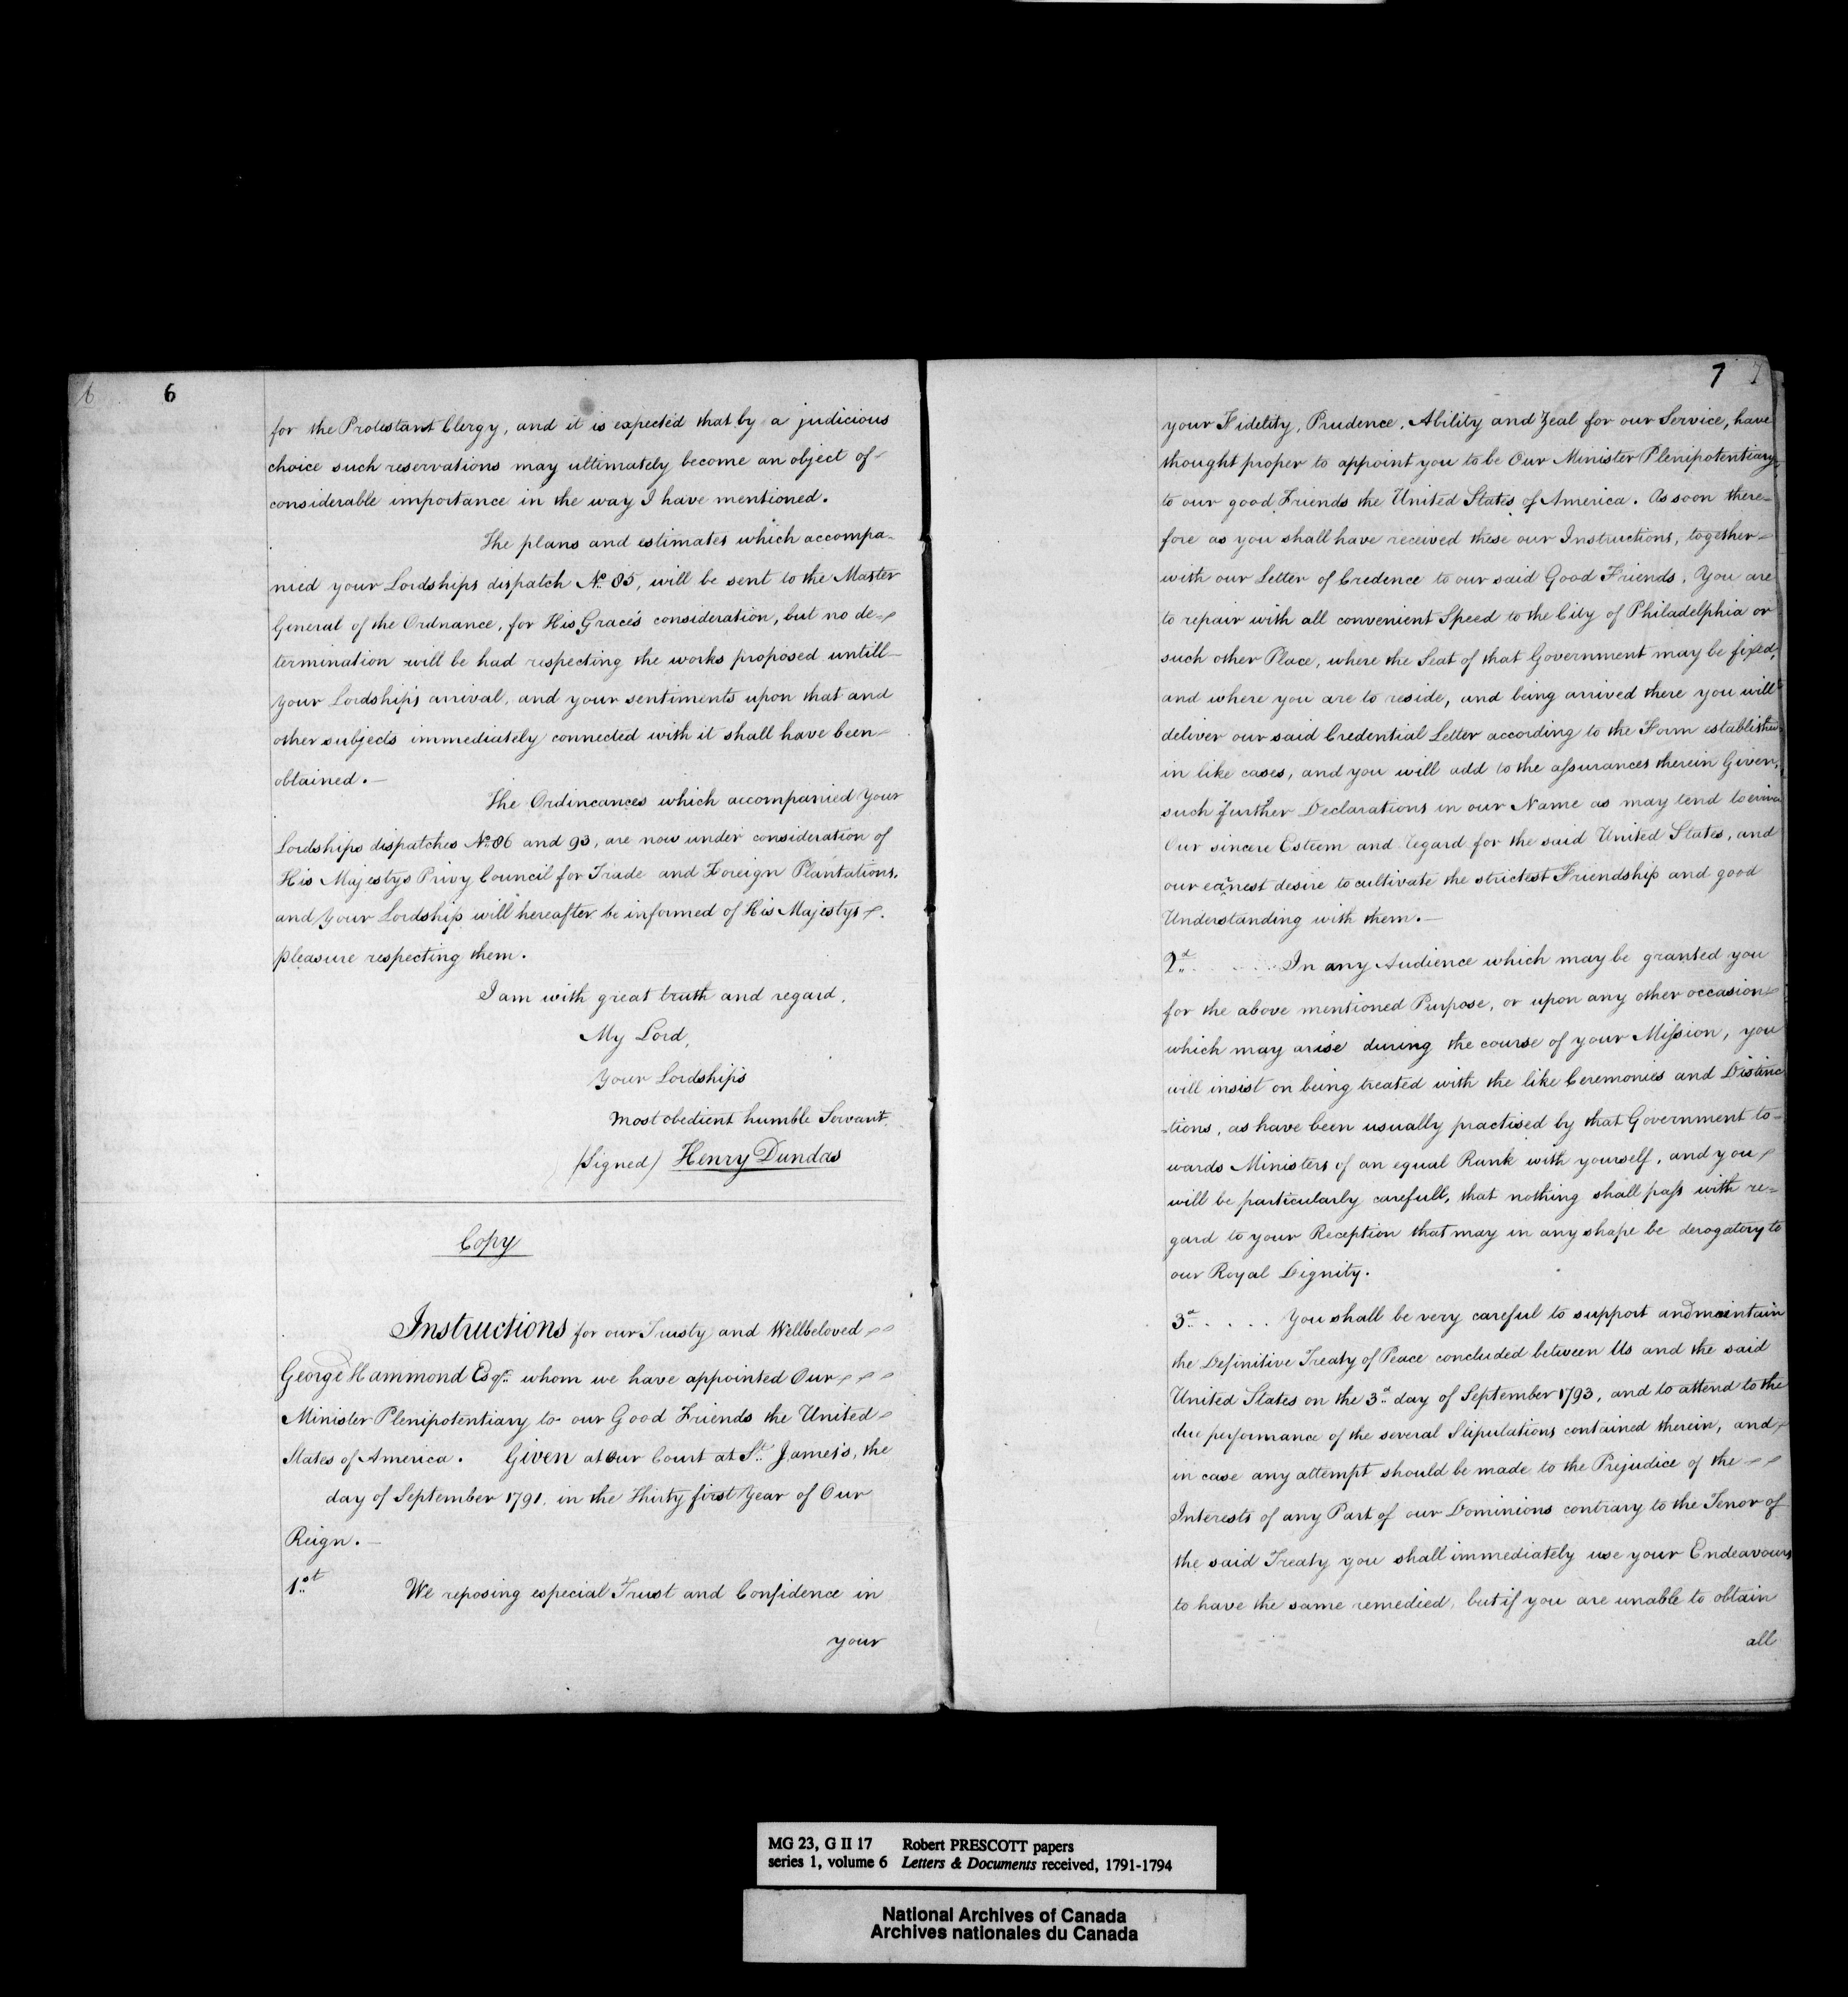 6 6
for the Protestant Clergy, and it is expected that by a judicious
choice such reservations may ultimately become an object of
considerable importance in the way I have mentioned.
The plans and estimates which accompa-
nied your Lordships dispatch No. 85, will be sent to the Master
General of the Ordnance, for His Grace's consideration, but no de-
termination will be had respecting the works proposed untill
your Lordship's arrival, and your sentiments upon that and
other subjects immediately connected with it shall have been
obtained.
The Ordincances which accompanied Your
Lordships dispatches No. 86 and 93, are now under consideration of
His Majestys Privy Council for Trade and Foreign Plantations,
and your Lordship will hereafter be informed of His Majestys
pleasure respecting them.
I am with great truth and regard,
My Lord,
Your Lordship's
most obedient humble Servant.
(Signed) Henry Dundas
Copy
Instructions for our Trusty and Wellbeloved
George Hammond Esqr. whom we have appointed Our
Minister Plenipotentiary to our Good Friends the United
States of America. Given at our Court at St. James's, the
day of September 1791. in the Thirty first Year of Our
Reign.
1st. We reposing especial Trust and Confidence in
your
7 7
your Fidelity, Prudence, Ability and Zeal for our Service, have
thought proper to appoint you to be Our Minister Plenipotentiary
to our good Friends the United States of America. As soon there-
fore as you shall have received these our Instructions, together
with our Letter of Credence to our said Good Friends, You are
to repair with all convenient Speed to the City of Philadelphia or
such other Place, where the Seat of that Government may be fixed,
and where you are to reside, and being arrived there you will
deliver our said Credential Letter according to the Form established
in like cases, and you will add to the assurances therein Given,
such further Declarations in our Name as may tend to
Our sincere Esteem and Regard for the said United States, and
our earnest desire to cultivate the strictest Friendship and good
Understanding with them.
2d. . . . . . In any Audience which may be granted you
for the above mentioned Purpose, or upon any other occasion
which may arise during the course of your Mission, you
will insist on being treated with the like Ceremonies and Distinc
-tions, as have been usually practised by that Government to-
wards Ministers of an equal Rank with yourself, and you
will be particularly carefull, that nothing shall pass with re-
gard to your Reception that may in any shape be derogatory to
our Royal Dignity.
3d. . . . . You shall be very careful to support and maintain
the Definitive Treaty of Peace concluded between Us and the said
United States on the 3d. day of September 1793, and to attend to the
due performance of the several Stipulations contained therein, and
in case any attempt should be made to the Prejudice of the
Interests of any Part of our Dominions contrary to the Tenor of
the said Treaty you shall immediately use your Endeavours
to have the same remedied, but if you are unable to obtain
all
MG 23, G II 17 Robert PRESCOTT papers
series 1, volume 6 Letters & Documents received, 1791-1794
National Archives of Canada
Archives nationales du Canada